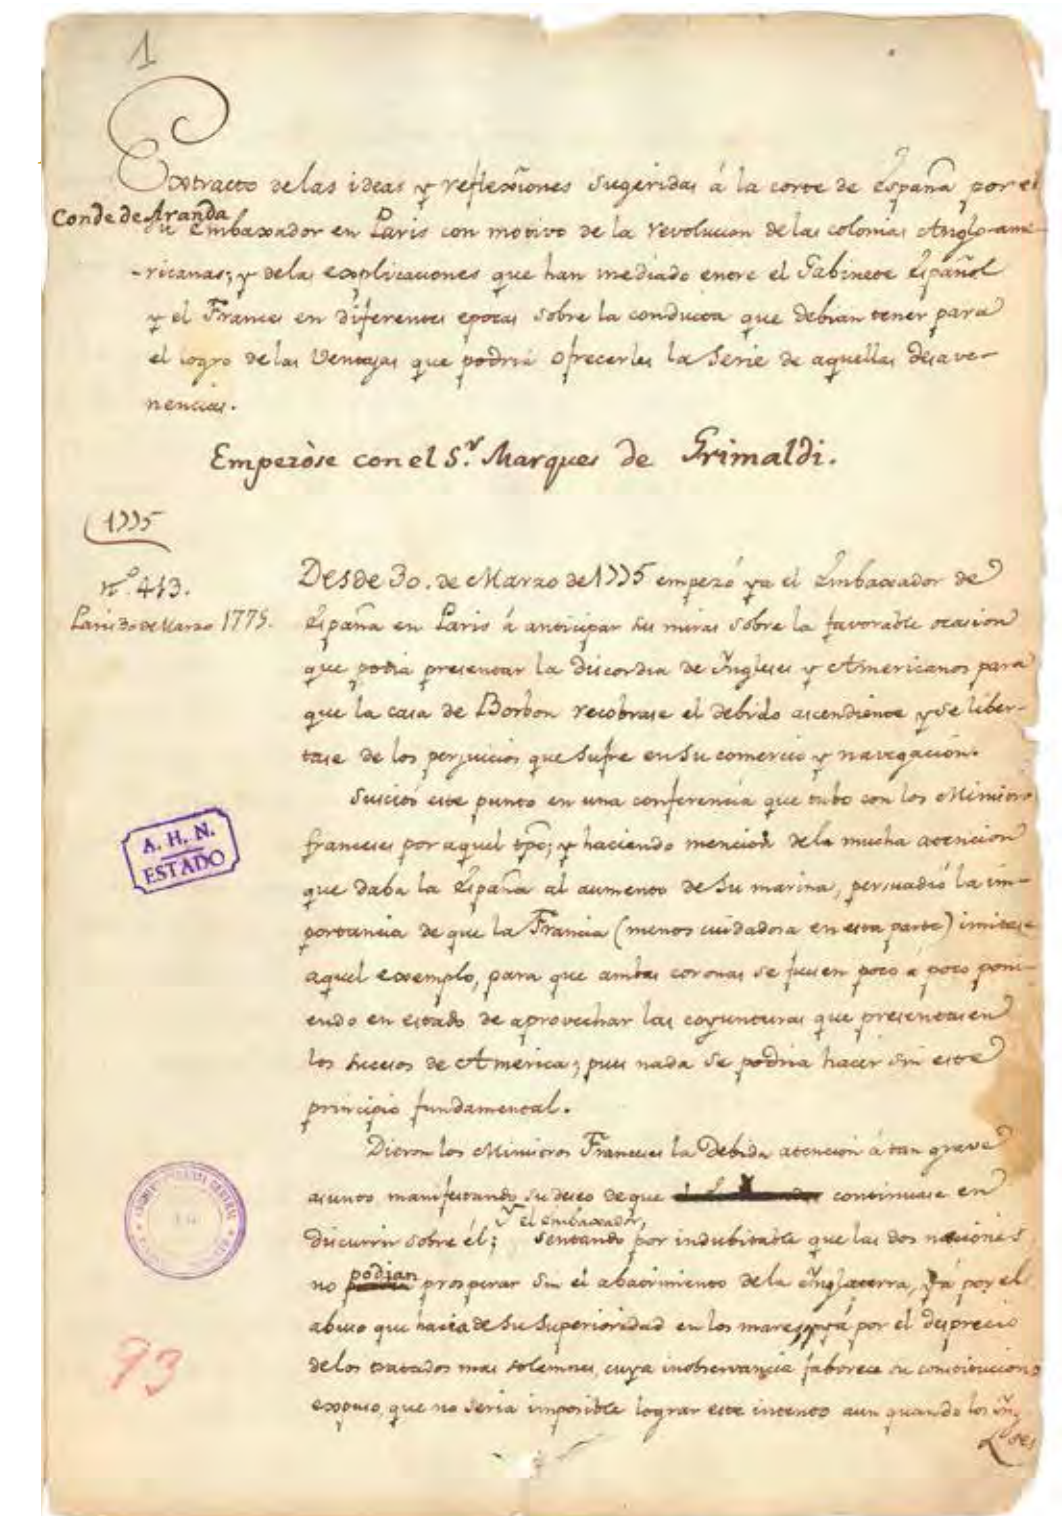 1
Extracto de las ideas y reflexiones sugeridas á la corte de España por el
Conde de Aranda
su Embaxador en Paris con motivo de la revolucion de las colonias Anglo-ame-
-ricanas; y de las explicaciones que han mediado entre el Gabinete Español
y el Frances en diferentes epocas sobre la conducta que debian tener para
el logro de las Ventajas que podria ofrecerles la Serie de aquellas desave-
nencias.
Empezòse con el S.r Marques de Grimaldi.
1775
n.o 413.
Paris 30 de Marzo 1775.
Desde 30. de Marzo de 1775 empezó ya el Embaxador de
España en Paris á anticipar sus miras sobre la favorable ocasion
que podia presentar la discordia de Yngleses y Americanos para
que la casa de Borbon recobrase el debido ascendiente y se liber-
tase de los perjuicios que sufre en su comercio y navegación.
Suscitó este punto en una conferencia que tubo con los Ministros
franceses por aquel tpo; y haciendo mencion de la mucha atencion
que daba la España al aumento de su marina, persuadió la im-
portancia de que la Francia (menos cuidadosa en esta parte) imitase
aquel exemplo, para que ambas coronas se fuesen poco á poco poni-
endo en estado de aprovechar las coyunturas que presentasen
los sucesos de America; pues nada se podria hacer sin este
principio fundamental.
Dieron los Ministros Franceses la debida atencion á tan grave
asunto manifestando su deseo de que continuase en
y el embaxador,
discurrir sobre él; sentando por indubitable que las dos naciones
podian
no prosperar sin el abatimiento de la Ynglaterra, yá por el
abuso que hacia de su superioridad en los mares, y yá por el desprecio
de los tratados mas solemnes, cuya inobservancia faborece su constitucion
expuso, que no seria imposible lograr este intento aun quando los Yng-
leses
A. H. N.
ESTADO
93